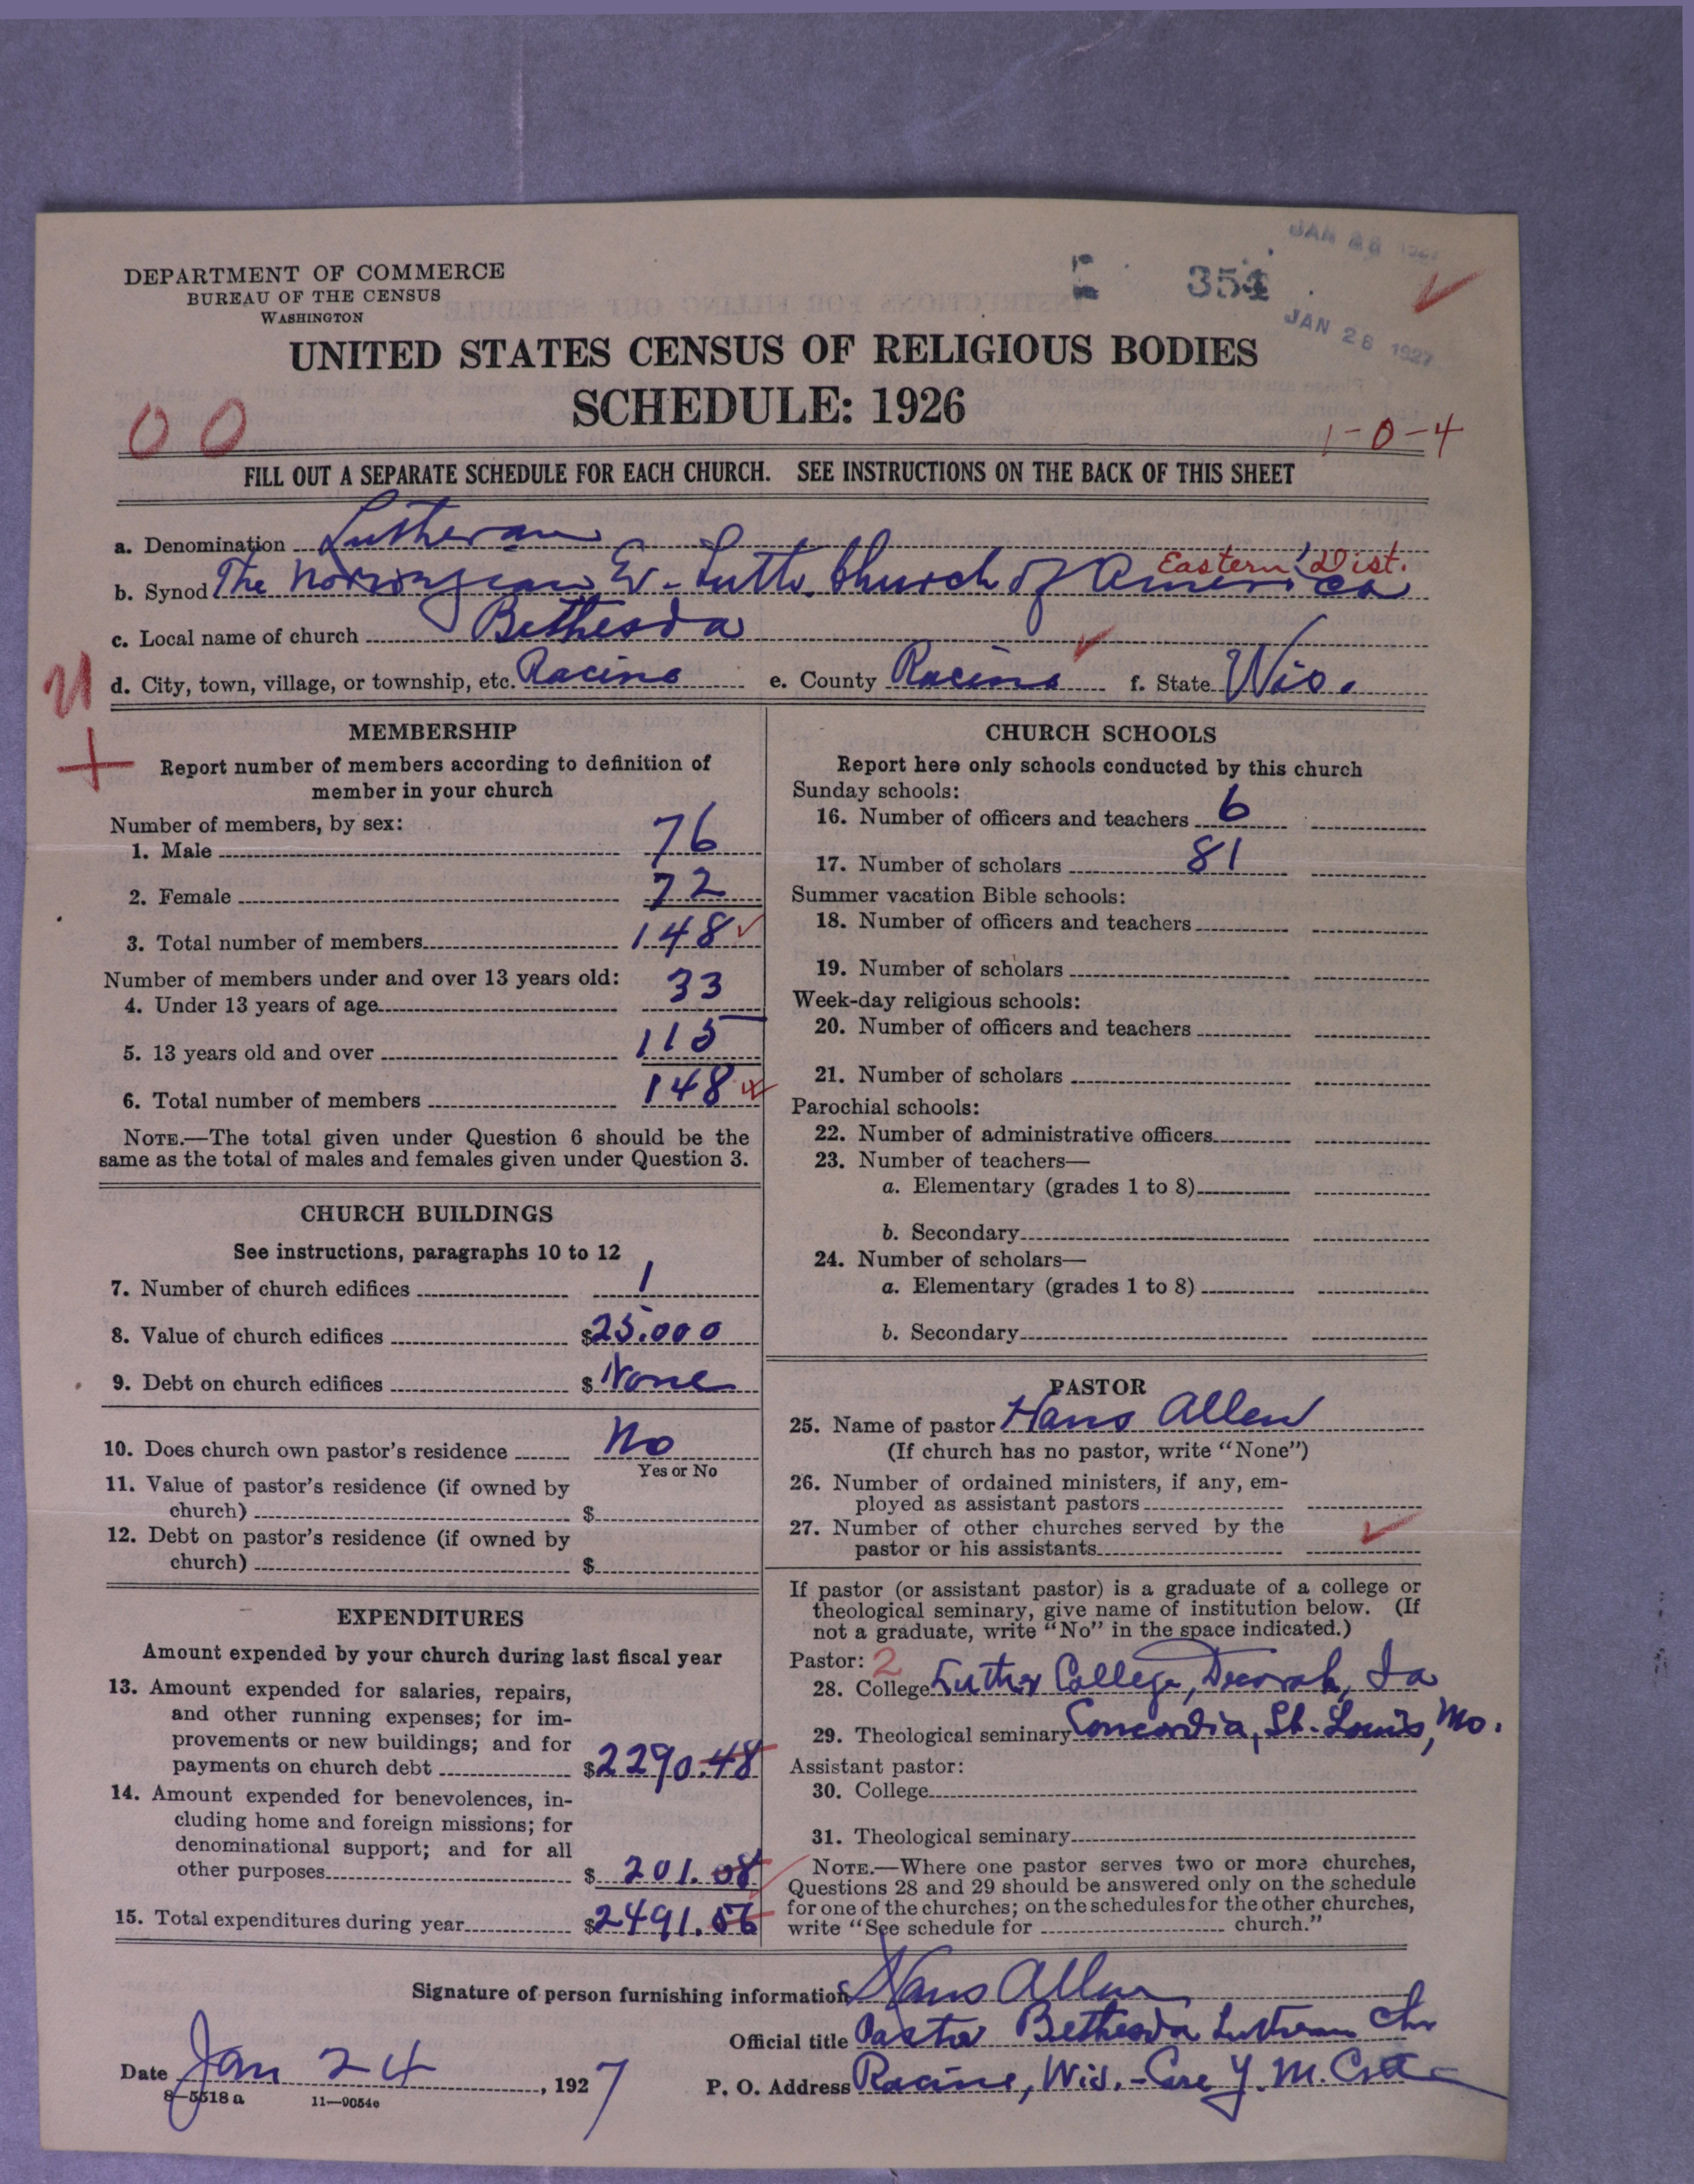 JAN 28 1927
354
JAN 28 1927
DEPARTMENT OF COMMERCE
BUREAU OF THE CENSUS
WASHINGTON
UNITED STATES CENSUS OF RELIGIOUS BODIES
SCHEDULE: 1926
00
1-0-4
FILL OUT A SEPARATE SCHEDULE FOR EACH CHURCH. SEE INSTRUCTIONS ON THE BACK OF THIS SHEET
a. Denomination Lutheran
Eastern Dist.
b. Synod The Norwegian Ev. Luth. Church of America
c. Local name of church Bethesda
d. City, town, village, or township, etc. Racine e. County Racine f. State Wis.
MEMBERSHIP
Report number of members according to definition of
member in your church
Number of members, by sex:
1. Male 76
2. Female 72
3. Total number of members 148
Number of members under and over 13 years old:
4. Under 13 years of age 33
5. 13 years old and over 115
6. Total number of members 148
NOTE.—The total given under Question 6 should be the
same as the total of males and females given under Question 3.
CHURCH BUILDINGS
See instructions, paragraphs 10 to 12
7. Number of church edifices 1
8. Value of church edifices $25.000
9. Debt on church edifices $ None
10. Does church own pastor's residence No
Yes or No
11. Value of pastor's residence (if owned by
church) $
12. Debt on pastor's residence (if owned by
church) $
EXPENDITURES
Amount expended by your church during last fiscal year
13. Amount expended for salaries, repairs,
and other running expenses; for im-
provements or new buildings; and for
payments on church debt $2290.48
14. Amount expended for benevolences, in-
cluding home and foreign missions; for
denominational support; and for all
other purposes $ 201.08
15. Total expenditures during year $2491.56
CHURCH SCHOOLS
Report here only schools conducted by this church
Sunday schools:
16. Number of officers and teachers 6
17. Number of scholars 81
Summer vacation Bible schools:
18. Number of officers and teachers
19. Number of scholars
Week-day religious schools:
20. Number of officers and teachers
21. Number of scholars
Parochial schools:
22. Number of administrative officers
23. Number of teachers—
a. Elementary (grades 1 to 8)
b. Secondary
24. Number of scholars—
a. Elementary (grades 1 to 8)
b. Secondary
PASTOR
25. Name of pastor Hans Allen
(If church has no pastor, write "None")
26. Number of ordained ministers, if any, em-
ployed as assistant pastors
27. Number of other churches served by the
pastor or his assistants
If pastor (or assistant pastor) is a graduate of a college or
theological seminary, give name of institution below. (If
not a graduate, write "No" in the space indicated.)
Pastor: 2
28. College Luther College, Decorah, Ia
29. Theological seminary Concordia, St. Louis, Mo.
Assistant pastor:
30. College
31. Theological seminary
NOTE.—Where one pastor serves two or more churches,
Questions 28 and 29 should be answered only on the schedule
for one of the churches; on the schedules for the other churches,
write "See schedule for church."
Signature of person furnishing information Hans Allen
Official title Pastor Bethesda Lutheran Ch
Date Jan 24, 1927
P. O. Address Racine, Wis. - Care Y. M. C.
8—5518a 11—9054e